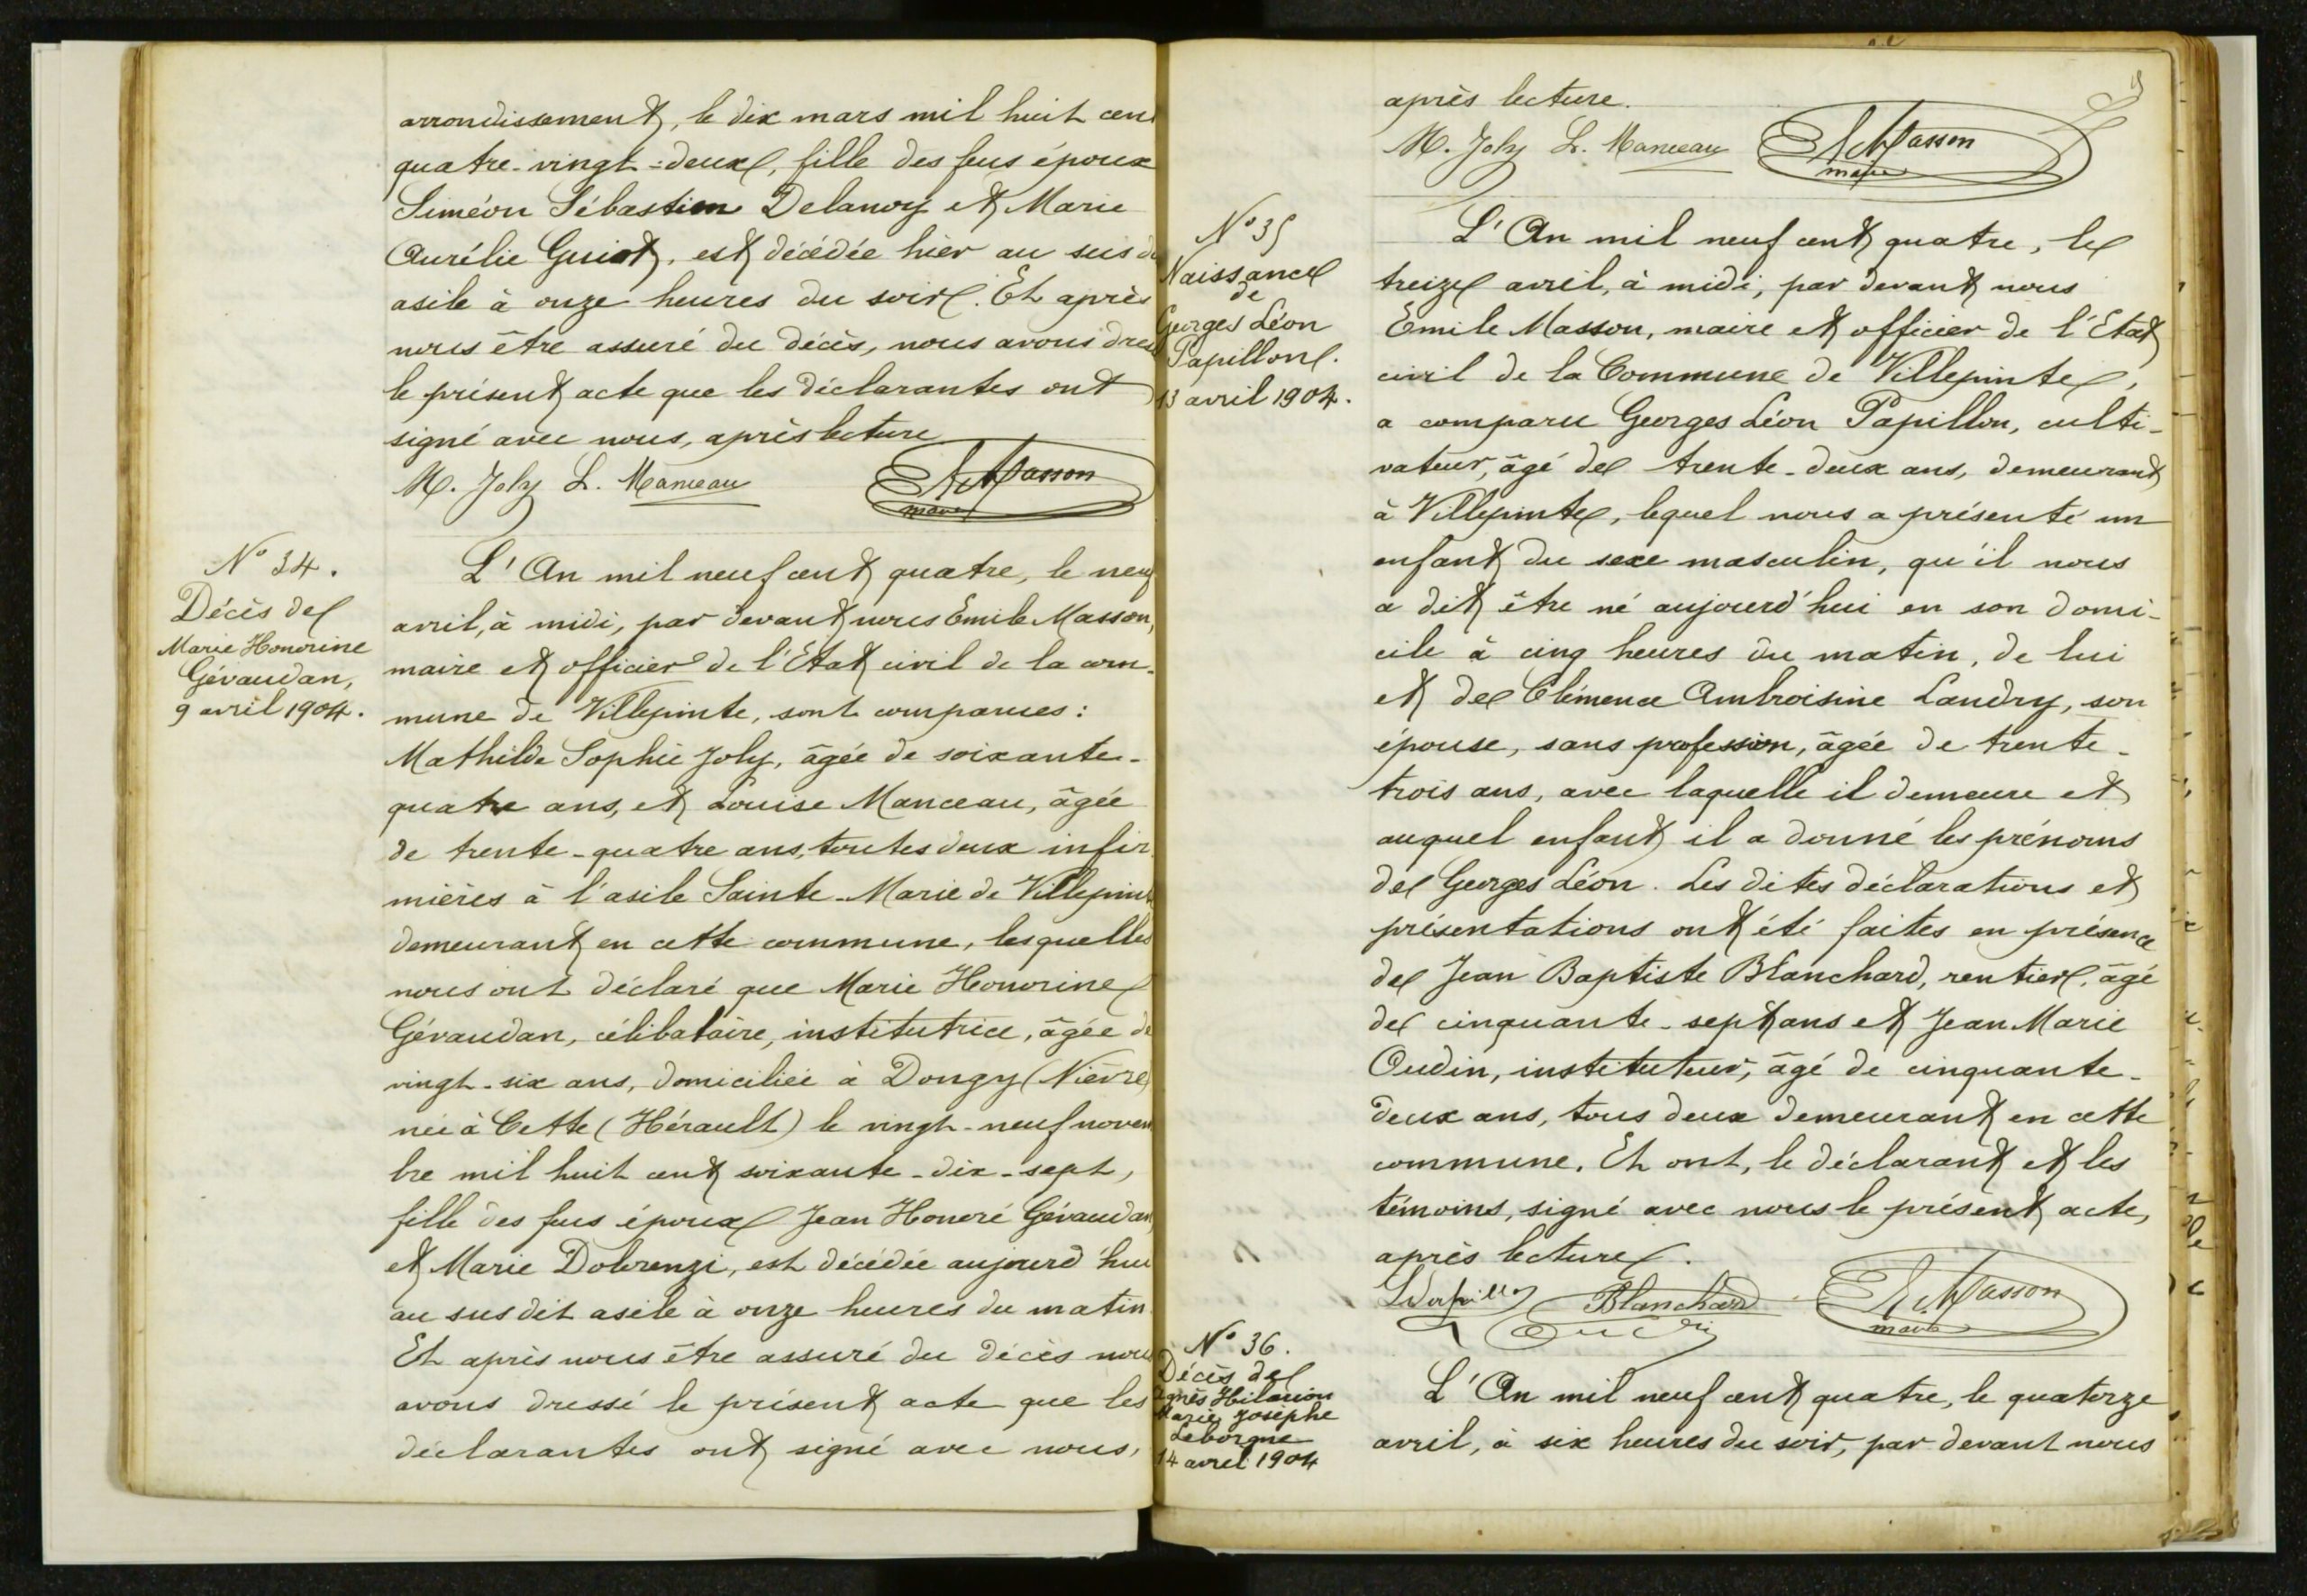 arrondissement, le dix mars mil huit cent
quatre-vingt-deux, fille des feus époux
Siméon Sébastien Delanoy et Marie
Aurélie Guiot, est décédée hier au sus d
asile à onze heures du soir. Et après
nous être assuré du décès, nous avons dres
le présent acte que les déclarantes ont
signé avec nous, après lecture
M. Joly L. Manceau E. Masson
maire
N° 34.
Décès de
Marie Honorine
Gévaudan,
9 avril 1904.
L'An mil neuf cent quatre, le neuf
avril, à midi, par devant nous Emile Masson,
maire et officier de l'Etat civil de la com-
mune de Villepinte, sont comparues :
Mathilde Sophie Joly, âgée de soixante-
quatre ans, et Louise Manceau, âgée
de trente-quatre ans, toutes deux infir
mières à l'asile Sainte-Marie de Villepint
demeurant en cette commune, lesquelles
nous ont déclaré que Marie Honorine
Gévaudan, célibataire, institutrice, âgée de
vingt-six ans, domiciliée à Dongy (Nièvre)
née à Cette (Hérault) le vingt-neuf novem
bre mil huit cent soixante-dix-sept,
fille des feus époux Jean Honoré Gévaudan
et Marie Dolerenzi, est décédée aujourd'hui
au sus dit asile à onze heures du matin
Et après nous être assuré du décès nous
avons dressé le présent acte que les
déclarantes ont signé avec nous,
après lecture.
M. Joly L. Manceau E. Masson
maire
N° 35
Naissance
de
Georges Léon
Papillon.
13 avril 1904.
L'An mil neuf cent quatre, le
treize avril, à midi, par devant nous
Emile Masson, maire et officier de l'Etat
civil de la Commune de Villepinte,
a comparu Georges Léon Papillon, culti-
vateur, âgé de trente-deux ans, demeurant
à Villepinte, lequel nous a présenté un
enfant du sexe masculin, qu'il nous
a dit être né aujourd'hui en son domi-
cile à cinq heures du matin, de lui
et de Clémence Ambroisine Landry, son
épouse, sans profession, âgée de trente-
trois ans, avec laquelle il demeure et
auquel enfant il a donné les prénoms
de Georges Léon. Les dites déclarations et
présentations ont été faites en présence
de Jean Baptiste Blanchard, rentier, âgé
de cinquante-sept ans et Jean Marie
Oudin, instituteur, âgé de cinquante-
deux ans, tous deux demeurant en cette
commune. Et ont, le déclarant et les
témoins, signé avec nous le présent acte,
après lecture.
Blanchard E. Masson
Oudin maire
N° 36.
Décès de
Agnès Hilarion
Marie Josèphe
Leborgne
14 avril 1904
L'An mil neuf cent quatre, le quatorze
avril, à six heures du soir, par devant nous